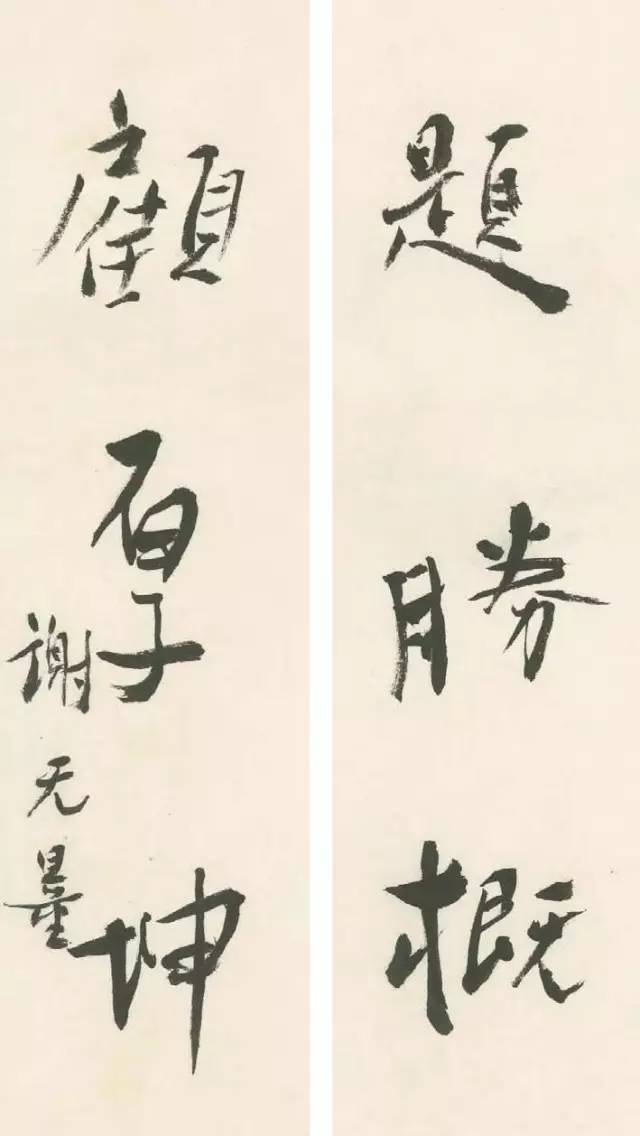 題勝概
顧厚坤
謝无量